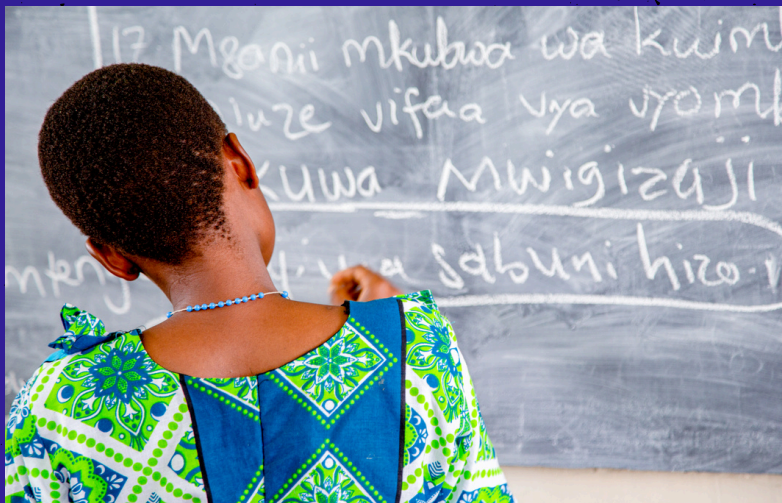 17 Mganii mkubwa wa kuim
luze vifaa vya vyomb
kuwa Mwigizaji
sabuni hizo.